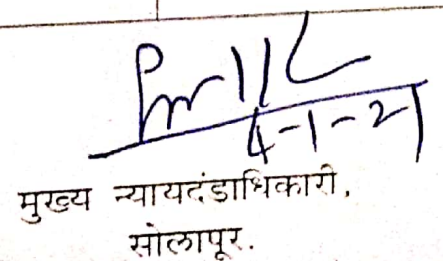 4-1-21
मुख्य न्यायदंडाधिकारी,
सोलापूर.